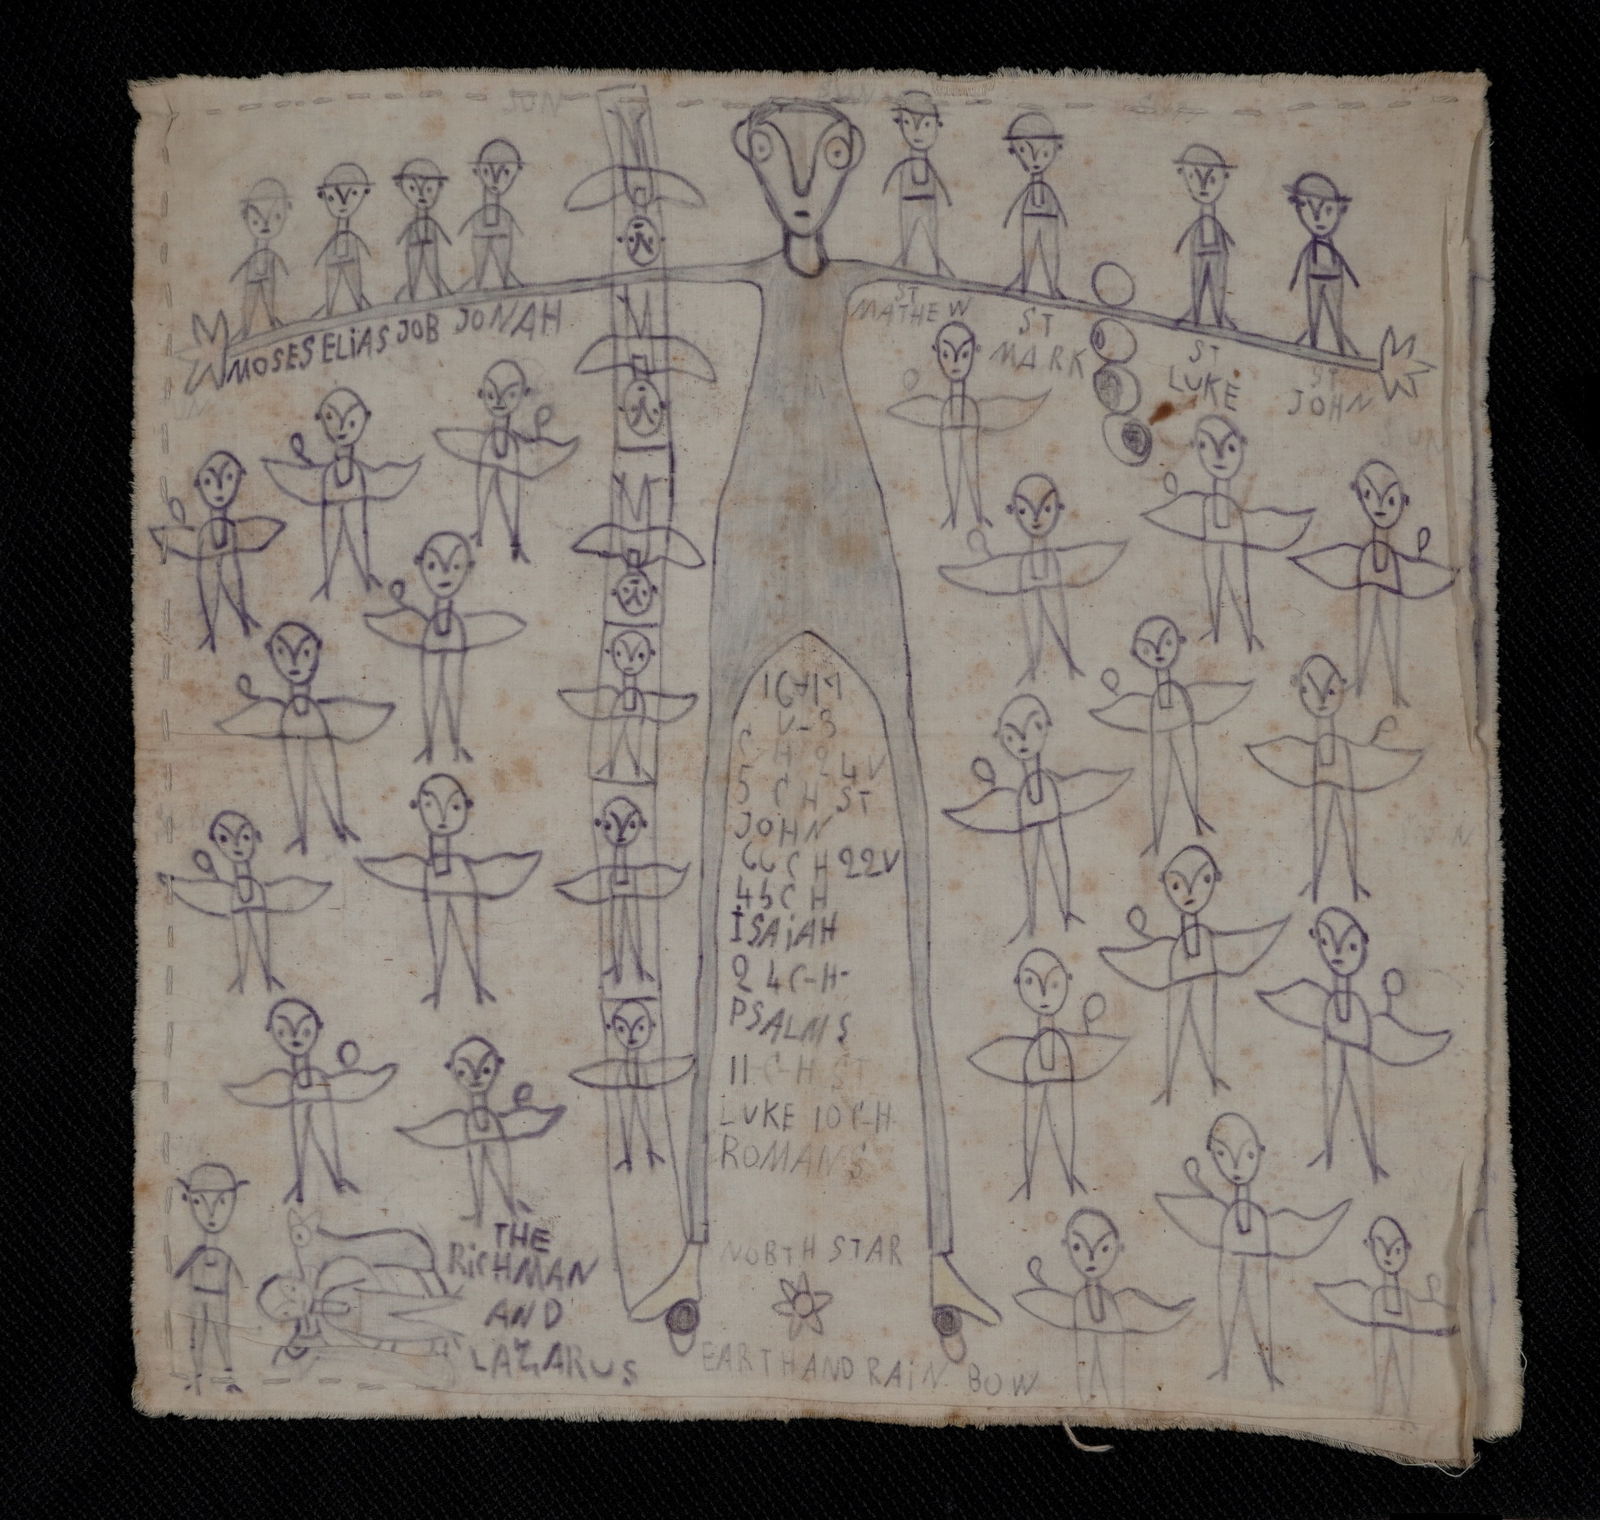 MOSES ELIAS JOB JONAH
ST
MATHEW
ST
MARK
ST
LUKE
ST
JOHN
5 CH ST
JOHN
66 CH 22V
45 CH
ISAIAH
24 C-H-
PSALMS
11 C-H ST
LUKE 10 C-H
ROMANS
NORTH STAR
EARTH AND RAIN BOW
THE
RICHMAN
AND
LAZARUS